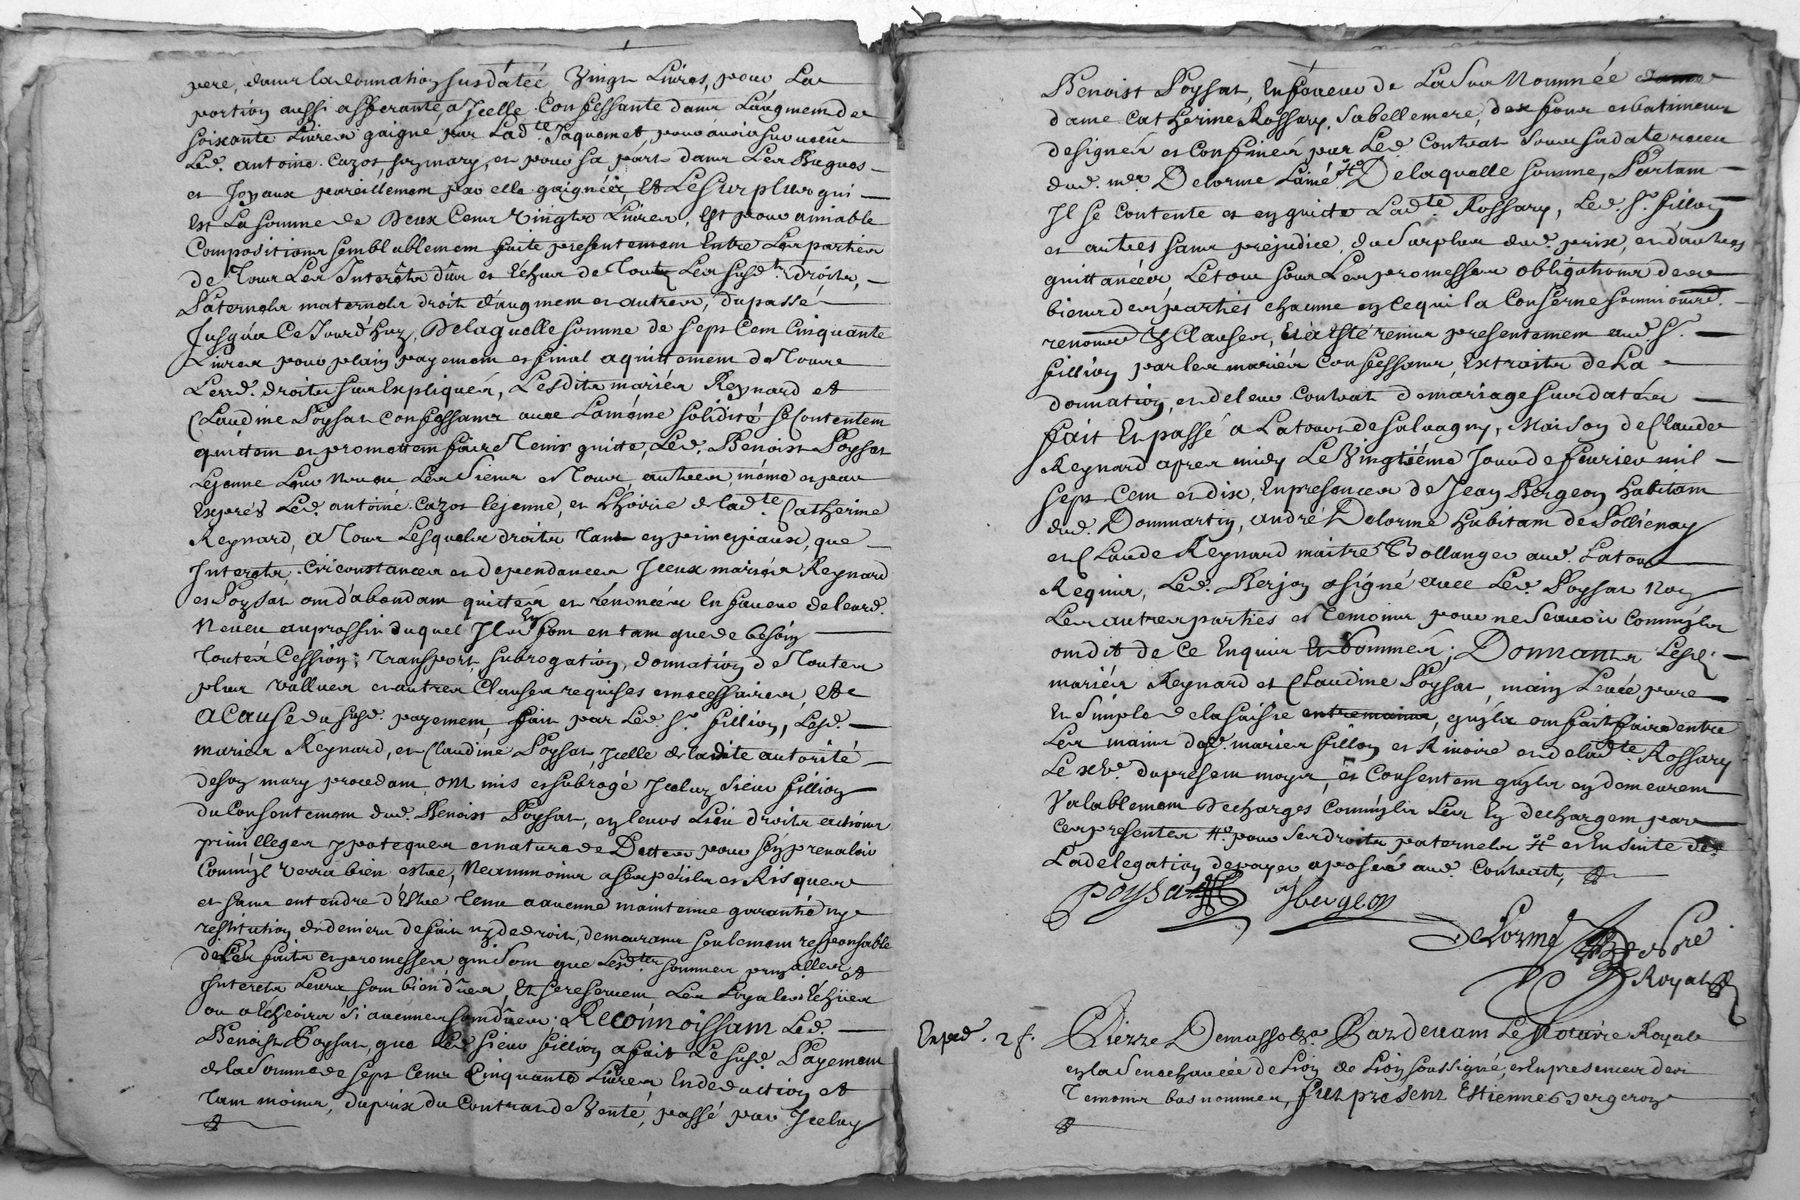 pere, dans la donnation susdatéé, Vingt Livres, pour La
portion aussi afferante, a Jcelle Confessante dans L'augment de
soixante Livres gaigné par Lad.te Jaquomet, pour avoir survecu
Led. antoine Cazot, son mary, et pour sa part dans Les Bagues
et Joyaux pareillement par elle gaignéés Et Le Surplus qui
Est La somme de Deux Cent Vingts Livres, Est pour amiable
Composition semblablement faite presentement Entre Les parties
de Tous Les Interêts dûs et Echus de Touts Les susd.ts droits,
Paternels maternels droit d'augment et autres, du passé
Jusqu'a Ce Jourd'huy, De laquelle somme de sept Cent Cinquante
Livres pour plain payement et final aquittement de Tous
Lesd. droits sus Expliqués, Lesdits mariés Reynard et
Claudine Poysat Confessants avec La même solidité se Contentent
quittent et promettent faire Tenir quitte, Led. Benoist Poysat
Lejeune Leur Neveu Les siens et Tous autres, même et par
Exprés Led. antoine Cazot lejeune, et L'hoirie de lad.te Catherine
Reynard, a Tous Lesquels droits Tant en principaux, que
Interets Circonstances et Dependances Jceux mariés Reynard
et Poysat ont d'abondant quittés et rénoncés En faveur de leurd.
Neveu au proffit duquel Ils En font en tant que de besoin
Toutes Cession, Transport, subrogation, donnation de Toutes
plus vallues et autres Clauses requises et necessaires, Et
A Cause du susd. payement fait par Led. Sr. fillion, Lesd.
mariés Reynard, et Claudine Poysat, Jcelle de la dite autorité
de son mary procedant, ont mis et subrogé Jceluy sieur fillion
du Consentement dud. Benoist Poysat, en leurs Lieu droits actions
privilleges ypoteques et nature de Dettes pour s'en prevaloir
Comm'il verra bien estre, Neanmoins a ses périls et Risques
et sans entendre d'Estre Tenus a aucune maintenue garantie ny
restitution de deniers de fait ny de droit, demeurants seulement responsable
de Leurs faits et promesses qui sont que Lesd.tes sommes principalles et
Interets Leurs sont bien dûes, Et se reservent Les Loyales Echües
ou a Echeoirs si aucunes sont dûes; Reconnoissant Led.
Benoist Poysat, que Led. sieur fillion a fait Le susd. Payement
de la somme de sept Cent Cinquante Livres En deduction et
Tant moins, du prix du Contract de Vente, passé par Jceluy
Benoist Poysat, En faveur de La sus Nommée
dame Catherine Rossary, sa belle mere, des fonds et batiments
designés et Confinés par Led. Contrat sous sa date receu
dud. mer. Delorme Lainé De laquelle somme, Partant
Il se Contente et en quitte Lad.te Rossary, Led. Sr. fillion
et autres sans prejudice, du Surplus dud. prix, et d'autres
quittances, Le tout sous Les promesses obligations de
biens des parties chacune en Ce qui la Conserne soumissions
renonc.ons & Clauses, Et a Esté remis presentement aud. Sr.
fillion par les mariés Confessants, Extraits de La
donnation, et de leur Contrat de mariage susdatés
fait Et passé a La tour de salvagny, Maison de Claude
Reynard apres midy Le Vingtiéme Jour de feurier mil
sept Cent et dix, En presence de Jean Bergeon habitant
dud. Dommartin, André Delorme habitant de Pollienay
et Claude Reynard maitre Bollanger aud. Latour
Requis, Led. Berjon a signé avec Led. Poysat Non
Les autres parties et Temoins pour ne Scavoir Comm'ils
ont dit de Ce Enquis Et sommés; Donnants Lesd.
mariés Reynard et Claudine Poysat, main Levée pure
Et simple de la saisie, qu'ils ont fait faire entre
Les mains desd. mariés fillion et Rinoire et de lad.te Rossary
Le du present moys, et Consentent qu'ils en demeurent
Valablement decharges Comm'ils Les En dechargent par
Ces presentes pour ses droits paternels et En suite de
La delegation de payer aposéé aud. Contrat,
Poysat JBergeon
Delorme
No.re
Royal
Exped. 2 f. Pierre Pardevant Le Notaire Royal
en la Senechaucéé de Lion de Lion soussigné, et En presence des
Temoins bas nommés, fut present Estienne Bergeron